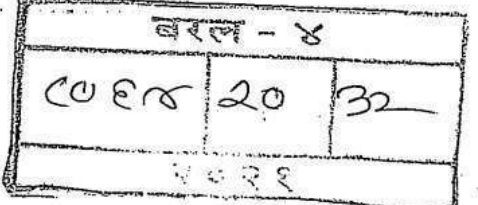 बरल - ४
८०६४ २० ३२
२०२१